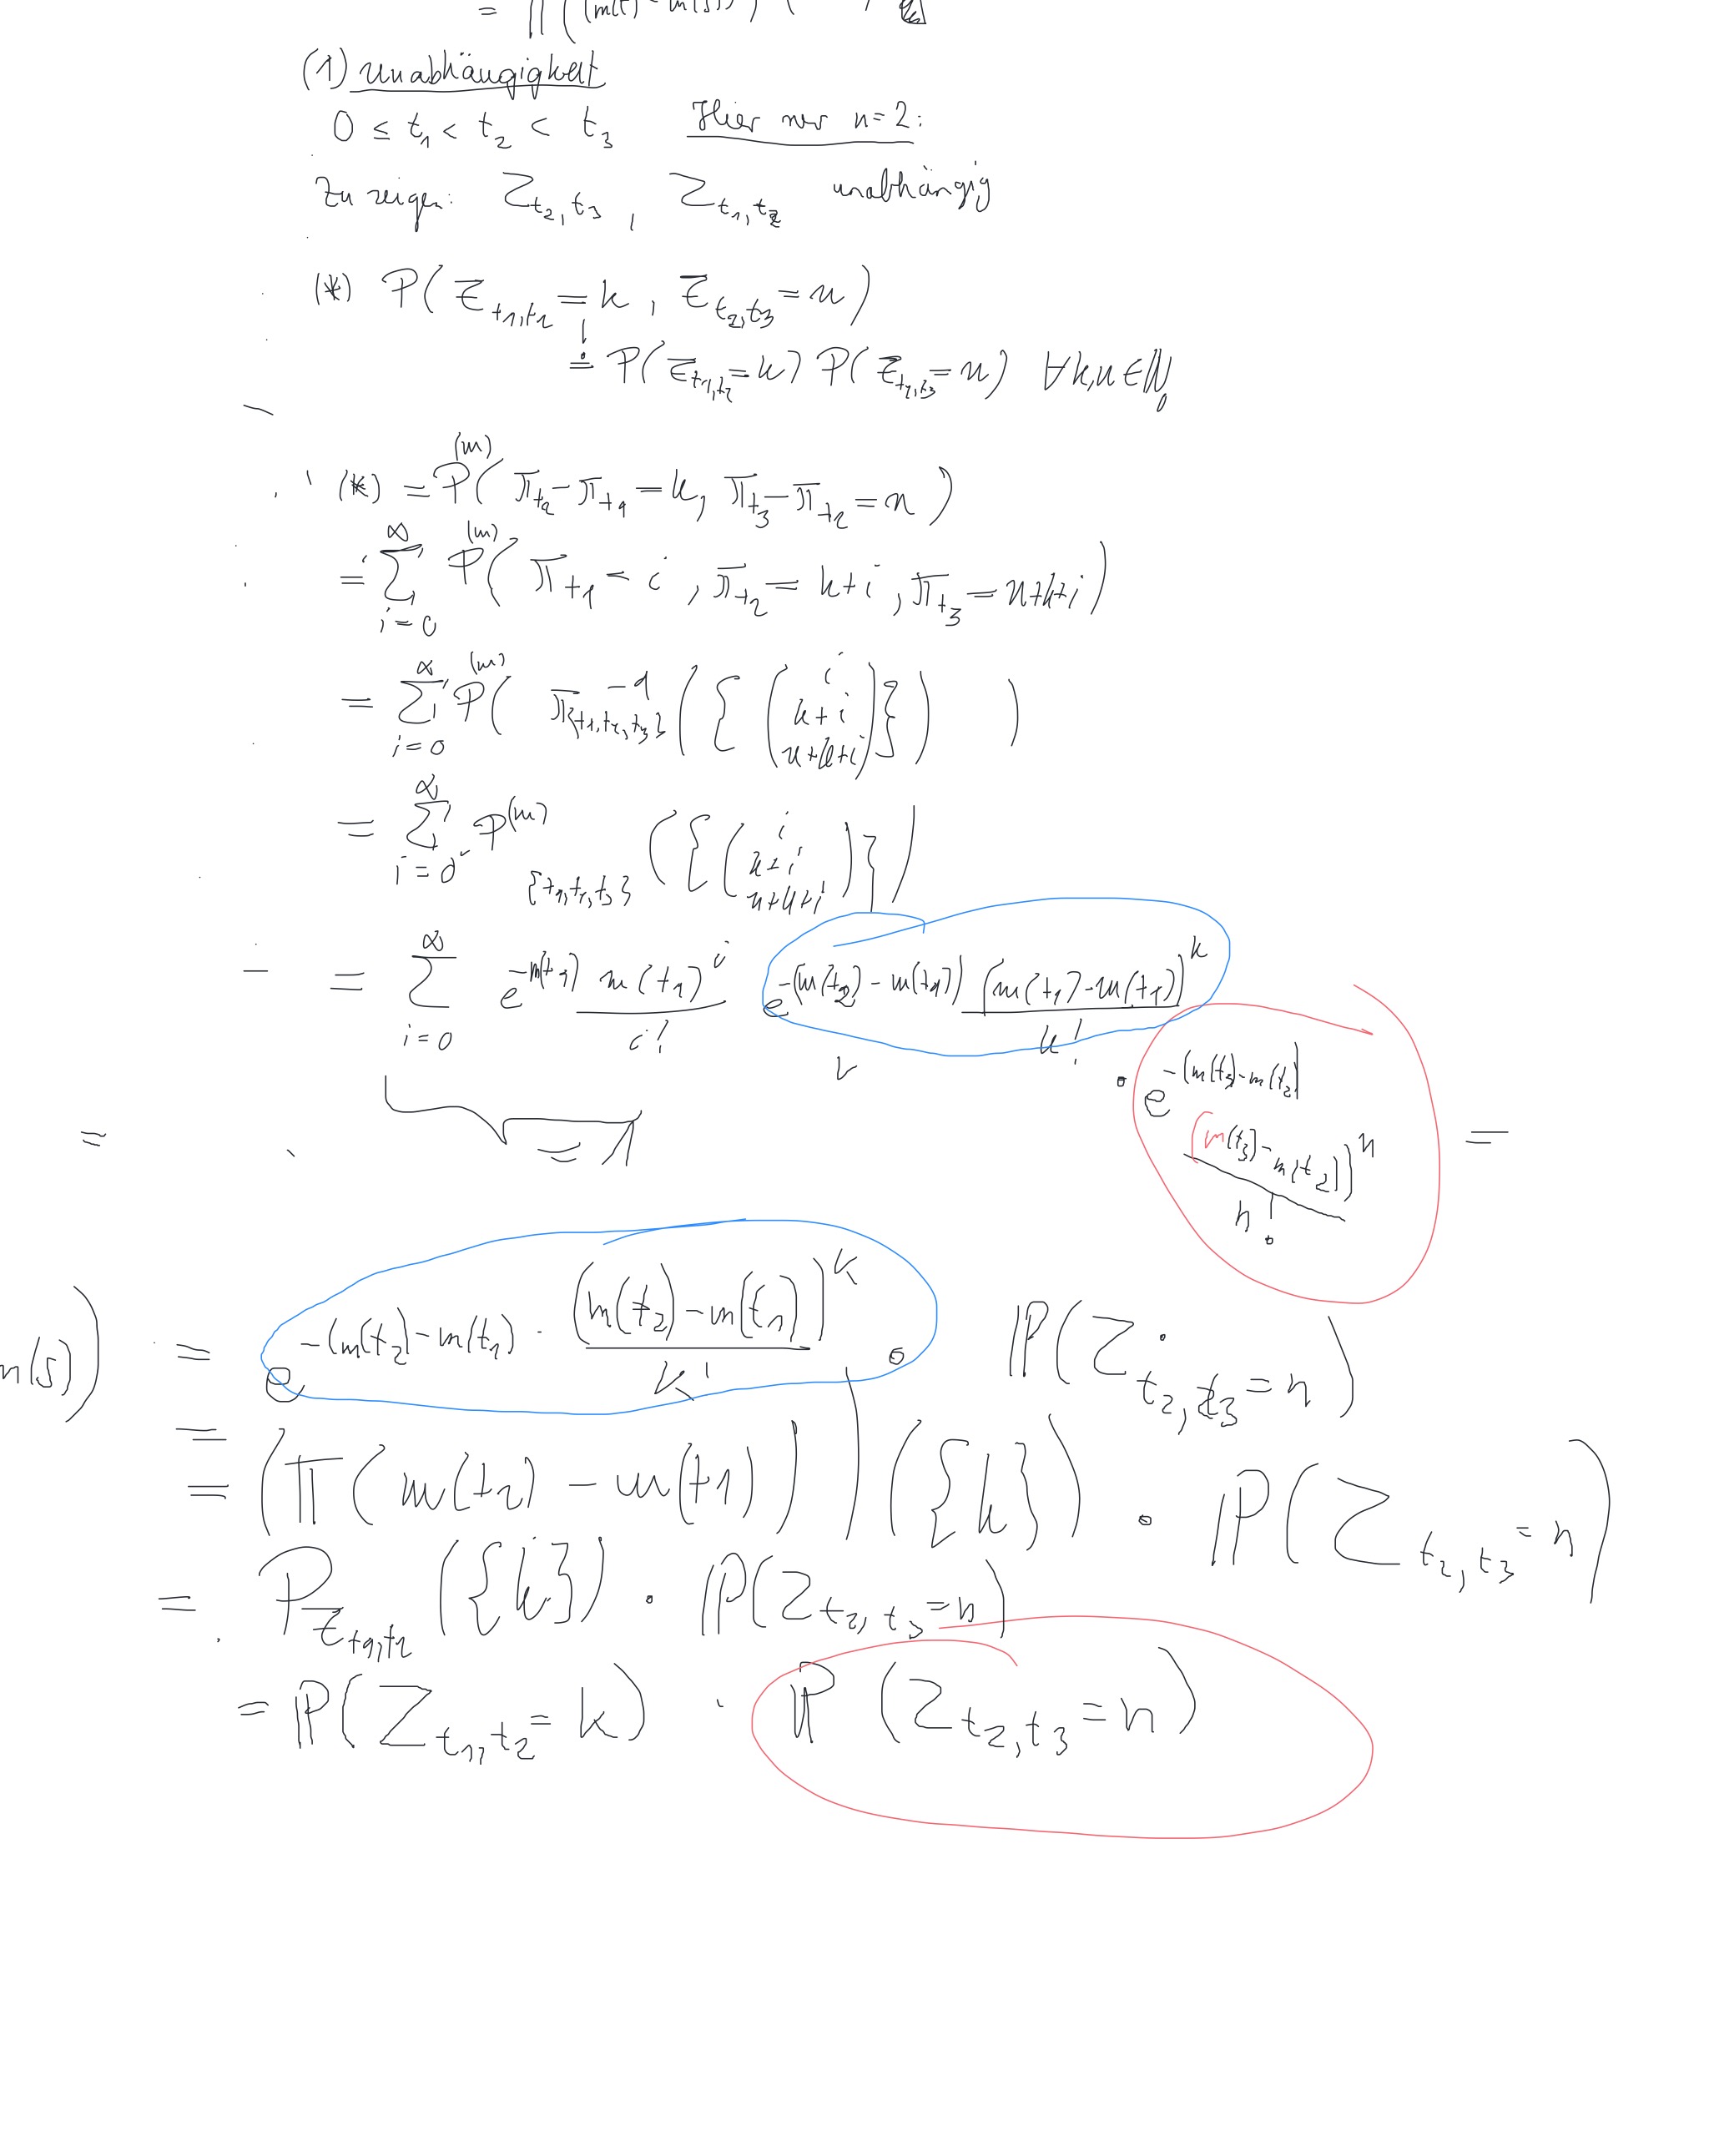 = π((m(t) - m(s)))(
(1) Unabhängigkeit
0 ≤ t₁ < t₂ < t₃ Hier nur n=2:
Zu zeigen: Z_{t₂,t₃}, Z_{t₁,t₂} unabhängig
(*) P(Z_{t₁,t₂} = k, Z_{t₂,t₃} = n)
=! P(Z_{t₁,t₂} = k) P(Z_{t₂,t₃} = n) ∀k,n∈ℕ₀
(*) = P^{(m)}(π_{t₂} - π_{t₁} = k, π_{t₃} - π_{t₂} = n)
= ∑_{i=0}^∞ P^{(m)}(π_{t₁} = i, π_{t₂} = k+i, π_{t₃} = n+k+i)
= ∑_{i=0}^∞ P^{(m)}(π^{-1}_{{t₁,t₂,t₃}}({(i, k+i, n+k+i)}))
= ∑_{i=0}^∞ P^{(m)}_{{t₁,t₂,t₃}}({(i, k+i, n+k+i)})
= ∑_{i=0}^∞ e^{-m(t₁)} m(t₁)^i / i! e^{-(m(t₂) - m(t₁))} (m(t₂) - m(t₁))^k / k!
· e^{-(m(t₃) - m(t₂))} (m(t₃) - m(t₂))^n / n! =
= 1
=
m(s)) = e^{-(m(t₂) - m(t₁))} · (m(t₂) - m(t₁))^k / k! · ℙ(Z_{t₂,t₃} = n)
=
= (π(m(t₂) - m(t₁)))({k}) · ℙ(Z_{t₂,t₃} = n)
= P_{Z_{t₁,t₂}}({k}) · ℙ(Z_{t₂,t₃} = n)
= ℙ(Z_{t₁,t₂} = k) · ℙ(Z_{t₂,t₃} = n)